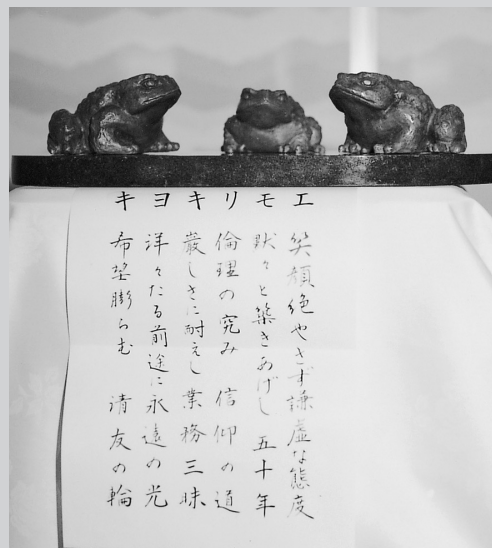 エ 笑顔絶やさず謙虚な態度
モ 黙々と築きあげし 五十年
リ 倫理の究み 信仰の道
キ 厳しさに耐えし業務三昧
ヨ 洋々たる前途に永遠の光
キ 希望膨らむ 清友の輪